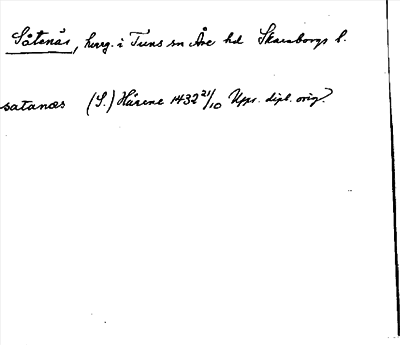 Såtenäs, herrg. i Tuns sn Åse hd Skaraborgs l.
satanæs (S.) Härene 1432 21/10 Upps. dipl. orig.